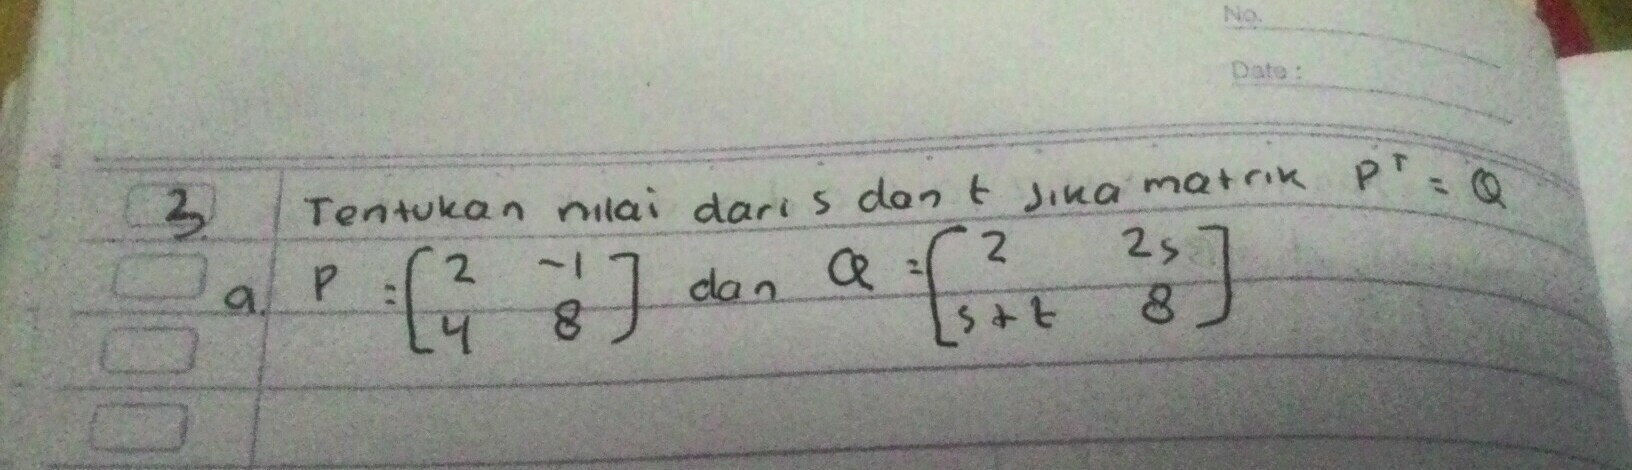 No.
Date :
3. Tentukan nilai dari s dan t jika matrik Pᵀ = Q
a. P = [2 -1] dan Q = [2 2s]
[4 8] [s+t 8]